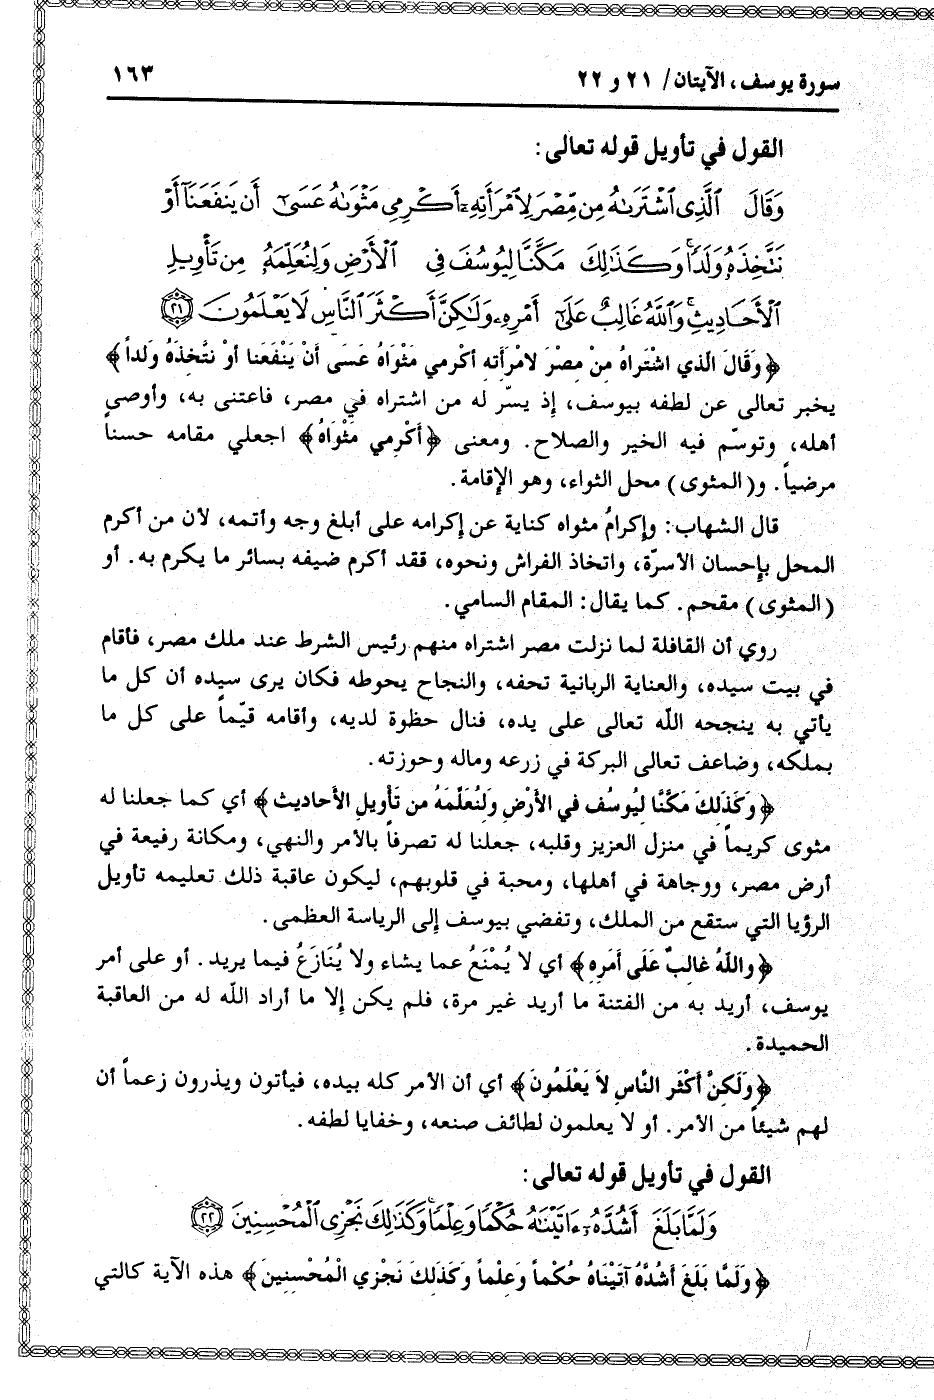 سورة يوسف، الآيتان/ ٢١ و ٢٢ ١٦٣
القول في تأويل قوله تعالى:
وَقَالَ ٱلَّذِى ٱشْتَرَىٰهُ مِن مِّصْرَ لِٱمْرَأَتِهِۦٓ أَكْرِمِى مَثْوَىٰهُ عَسَىٰٓ أَن يَنفَعَنَآ أَوْ
نَتَّخِذَهُۥ وَلَدًا ۚ وَكَذَٰلِكَ مَكَّنَّا لِيُوسُفَ فِى ٱلْأَرْضِ وَلِنُعَلِّمَهُۥ مِن تَأْوِيلِ
ٱلْأَحَادِيثِ ۚ وَٱللَّهُ غَالِبٌ عَلَىٰٓ أَمْرِهِۦ وَلَٰكِنَّ أَكْثَرَ ٱلنَّاسِ لَا يَعْلَمُونَ ٢١
﴿وَقَالَ الَّذي اشْتَراهُ مِنْ مِصْرَ لامْرَأته أكْرمي مَثْوَاهُ عَسَى أنْ يَنْفَعَنا أوْ نتَّخذَهُ وَلَداً﴾
يخبر تعالى عن لطفه بيوسف، إذ يسّر له من اشتراه في مصر، فاعتنى به، وأوصى
أهله، وتوسّم فيه الخير والصلاح. ومعنى ﴿أَكْرِمِي مَثْوَاهُ﴾ اجعلي مقامه حسناً
مرضياً. و(المثوى) محل الثواء، وهو الإقامة.
قال الشهاب: وإكرامُ مثواه كناية عن إكرامه على أبلغ وجه وأتمه، لأن من أكرم
المحل بإحسان الأسرّة، واتخاذ الفراش ونحوه، فقد أكرم ضيفه بسائر ما يكرم به. أو
(المثوى) مقحم. كما يقال: المقام السامي.
روي أن القافلة لما نزلت مصر اشتراه منهم رئيس الشرط عند ملك مصر، فأقام
في بيت سيده، والعناية الربانية تحفه، والنجاح يحوطه فكان يرى سيده أن كل ما
يأتي به ينجحه اللّه تعالى على يده، فنال حظوة لديه، وأقامه قيّماً على كل ما
يملكه، وضاعف تعالى البركة في زرعه وماله وحوزته.
﴿وَكَذَلِكَ مَكَّنَّا لِيُوسُف في الأرْضِ وَلِنُعَلِّمَهُ من تَأْويلِ الأحَاديث﴾ أي كما جعلنا له
مثوى كريماً في منزل العزيز وقلبه، جعلنا له تصرفاً بالأمر والنهي، ومكانة رفيعة في
أرض مصر، ووجاهة في أهلها، ومحبة في قلوبهم، ليكون عاقبة ذلك تعليمه تأويل
الرؤيا التي ستقع من الملك، وتفضي بيوسف إلى الرياسة العظمى.
﴿واللَّهُ غالبٌ عَلَى أمَرِه﴾ أي لا يُمْنَعُ عما يشاء ولا يُنَازَعُ فيما يريد. أو على أمر
يوسف، أريد به من الفتنة ما أريد غير مرة، فلم يكن إلا ما أراد اللّه له من العاقبة
الحميدة.
﴿وَلَكنْ أكْثَر النَّاسِ لاَ يَعْلَمُونَ﴾ أي أن الأمر كله بيده، فيأتون ويذرون زعماً أن
لهم شيئاً من الأمر. أو لا يعلمون لطائف صنعه، وخفايا لطفه.
القول في تأويل قوله تعالى:
وَلَمَّا بَلَغَ أَشُدَّهُۥٓ ءَاتَيْنَٰهُ حُكْمًا وَعِلْمًا ۚ وَكَذَٰلِكَ نَجْزِى ٱلْمُحْسِنِينَ ٢٢
﴿وَلَمَّا بَلَغَ أَشُدَّهُ آتَيْنَاهُ حُكْماً وَعِلْماً وَكَذَلِكَ نَجْزِي الْمُحْسِنِينَ﴾ هذه الآية كالتي